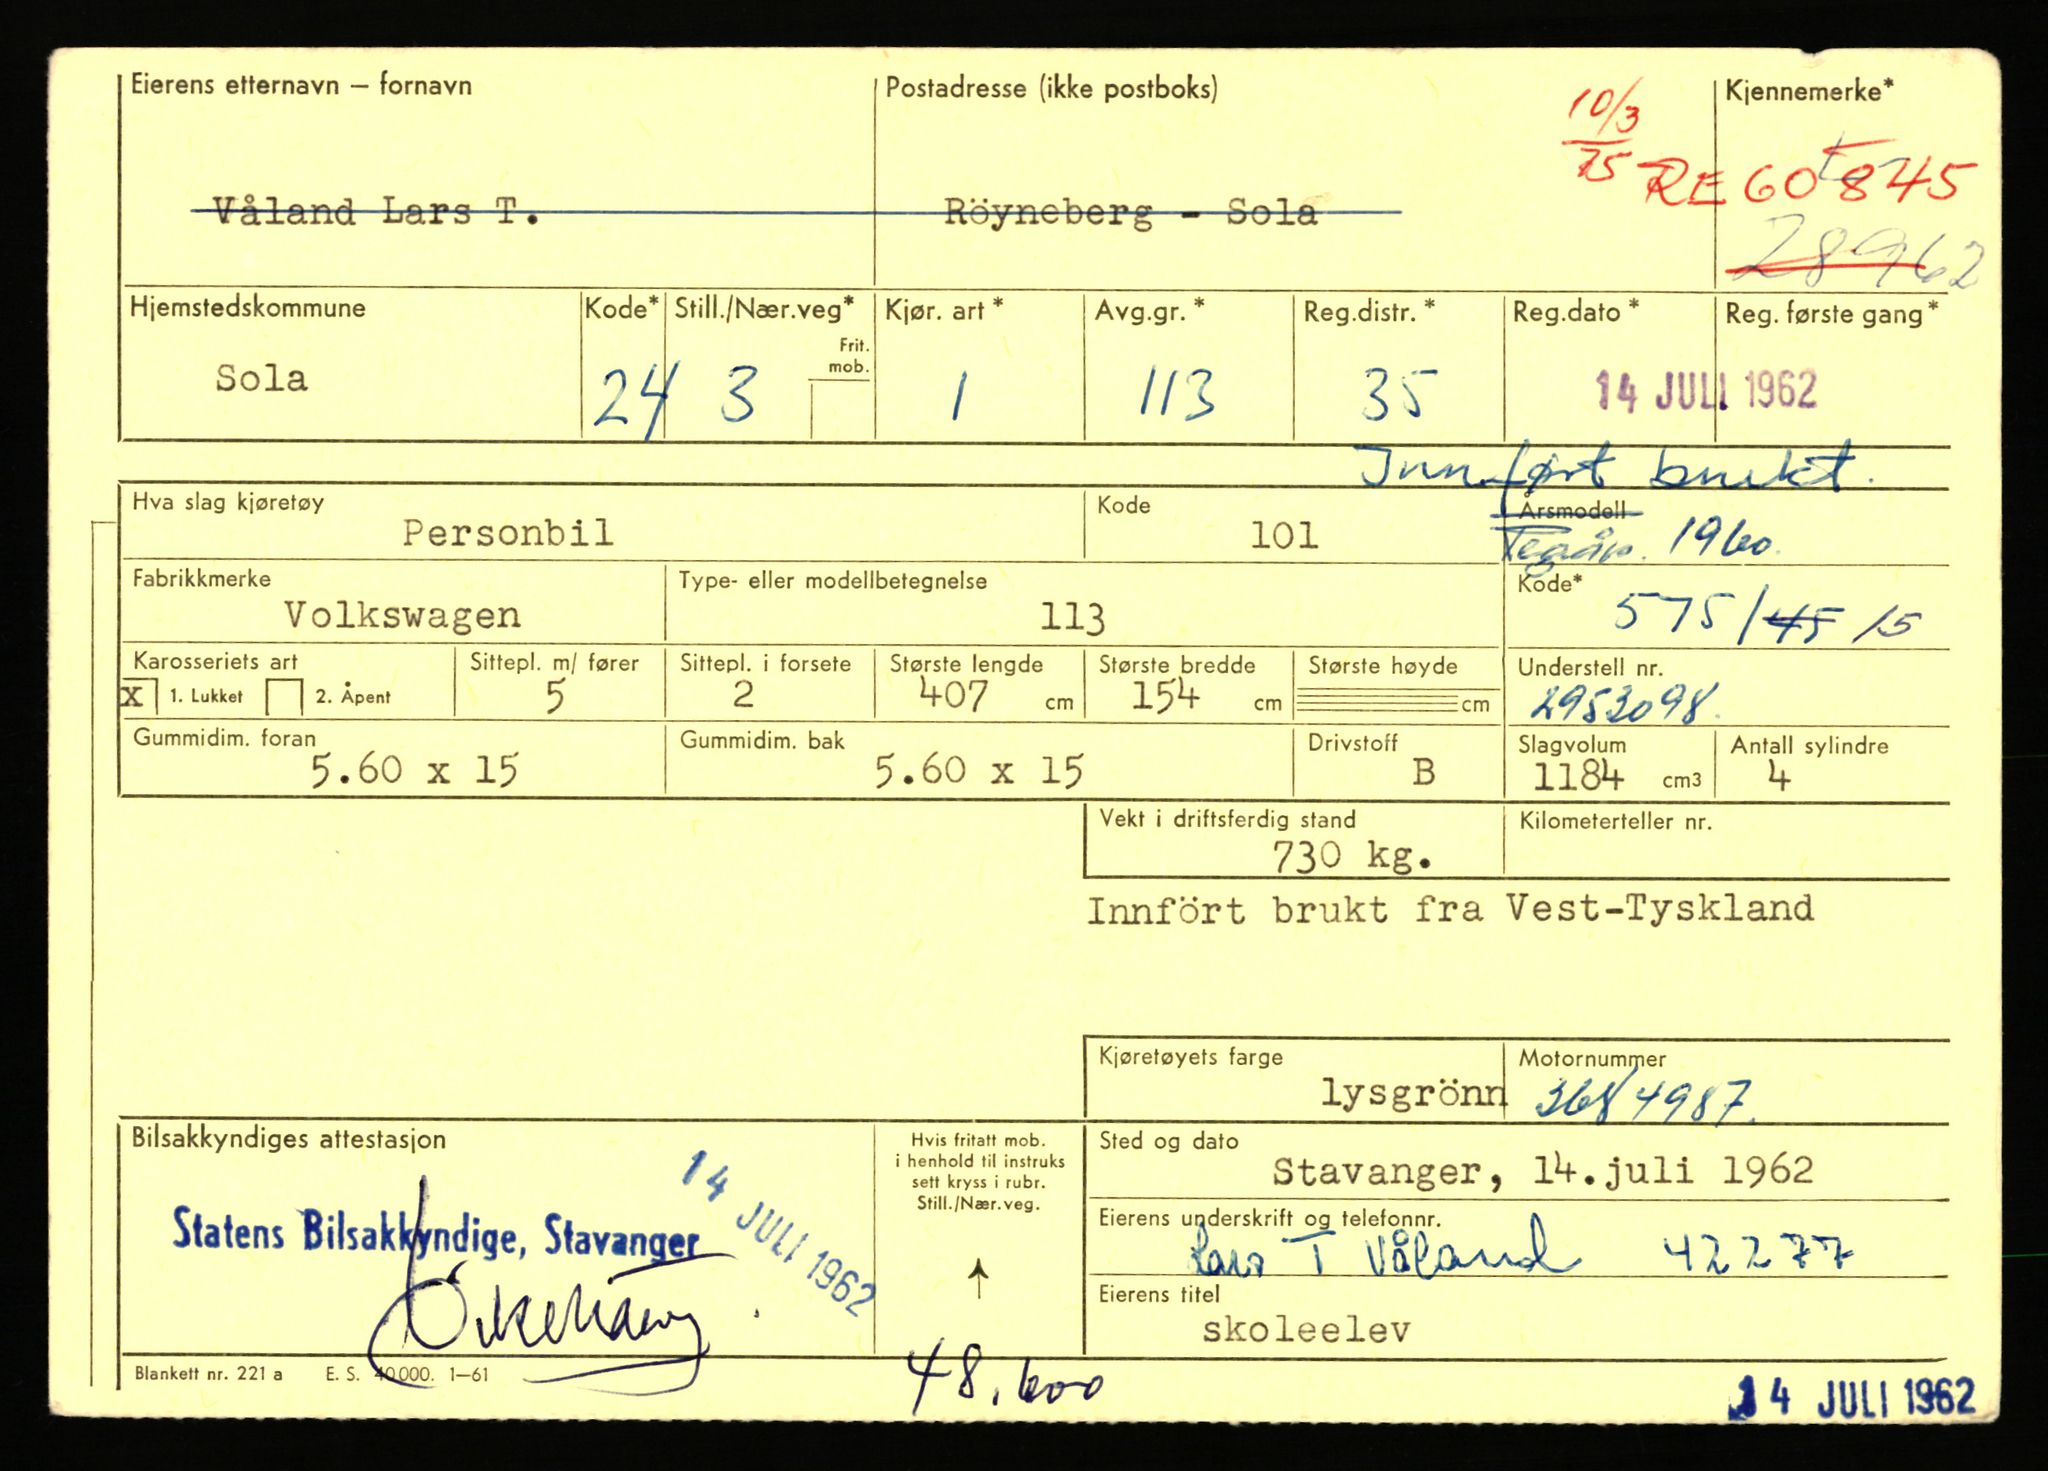 Eierens etternavn — fornavn
Postadresse (ikke postboks)
Kjennemerke*
10/3
75
RE 60845
Våland Lars T.
Röyneberg - Sola
28962
Hjemstedskommune
Kode*
Still./Nær.veg*
Kjør. art *
Avg.gr. *
Reg.distr. *
Reg.dato *
Reg. første gang*
Frit.
mob.
Sola
24
3
1
113
35
14 JULI 1962
Innført brukt.
Hva slag kjøretøy
Personbil
Kode
101
Årsmodell
1960.
Fabrikkmerke
Volkswagen
Type- eller modellbetegnelse
113
Kode*
575/45 15
Karosseriets art
X 1. Lukket 2. Åpent
Sittepl. m/ fører
5
Sittepl. i forsete
2
Største lengde
407 cm
Største bredde
154 cm
Største høyde
cm
Understell nr.
2953098.
Gummidim. foran
5.60 x 15
Gummidim. bak
5.60 x 15
Drivstoff
B
Slagvolum
1184 cm3
Antall sylindre
4
Vekt i driftsferdig stand
730 kg.
Kilometerteller nr.
Innfört brukt fra Vest-Tyskland
Kjøretøyets farge
lysgrönn
Motornummer
3684987.
Bilsakkyndiges attestasjon
14 JULI 1962
Statens Bilsakkyndige, Stavanger
Hvis fritatt mob.
i henhold til instruks
sett kryss i rubr.
Still./Nær.veg.
Sted og dato
Stavanger, 14.juli 1962
Eierens underskrift og telefonnr.
Lars T Våland 42277
Eierens titel
skoleelev
Blankett nr. 221 a E. S. 40000. 1—61
48.600
14 JULI 1962